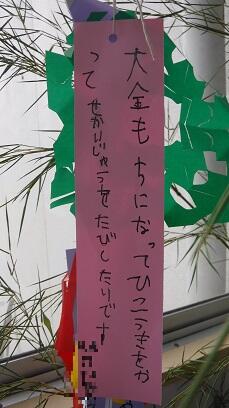 大金もちになってひこうきをか
って せかいじゅうをたびしたいです